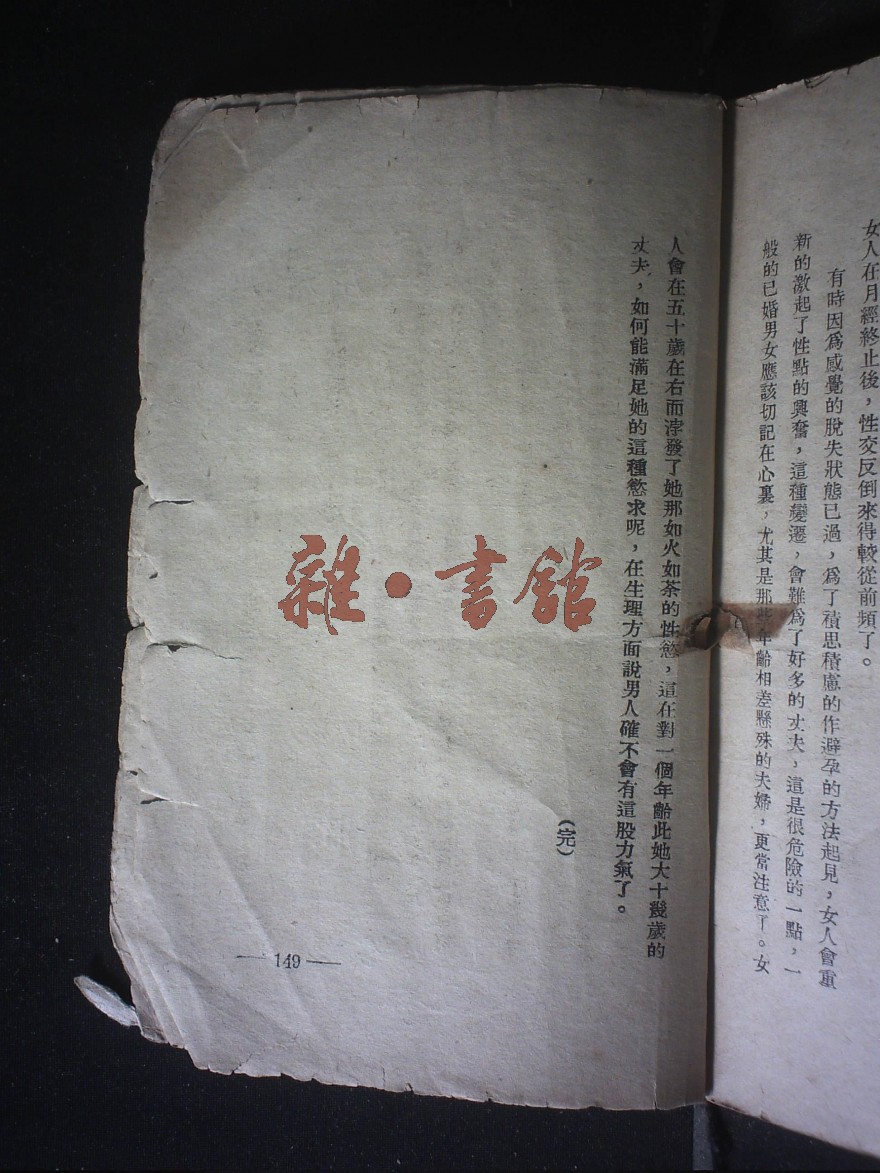 女人在月經終止後，性交反倒來得較從前頻了。
有時因爲感覺的脫失狀態已過，爲了積思積慮的作避孕的方法起見，女人會重
新的激起了性點的興奮，這種變遷，會難爲了好多的丈夫，這是很危險的一點，一
般的已婚男女應該切記在心裏，尤其是那些年齡相差懸殊的夫婦，更當注意了。女
人會在五十歲在右而浡發了她那如火如荼的性慾，這在對一個年齡此她大十幾歲的
丈夫，如何能滿足她的這種慾求呢，在生理方面說男人確不會有這股力氣了。
（完）
— 149 —
雜·書館